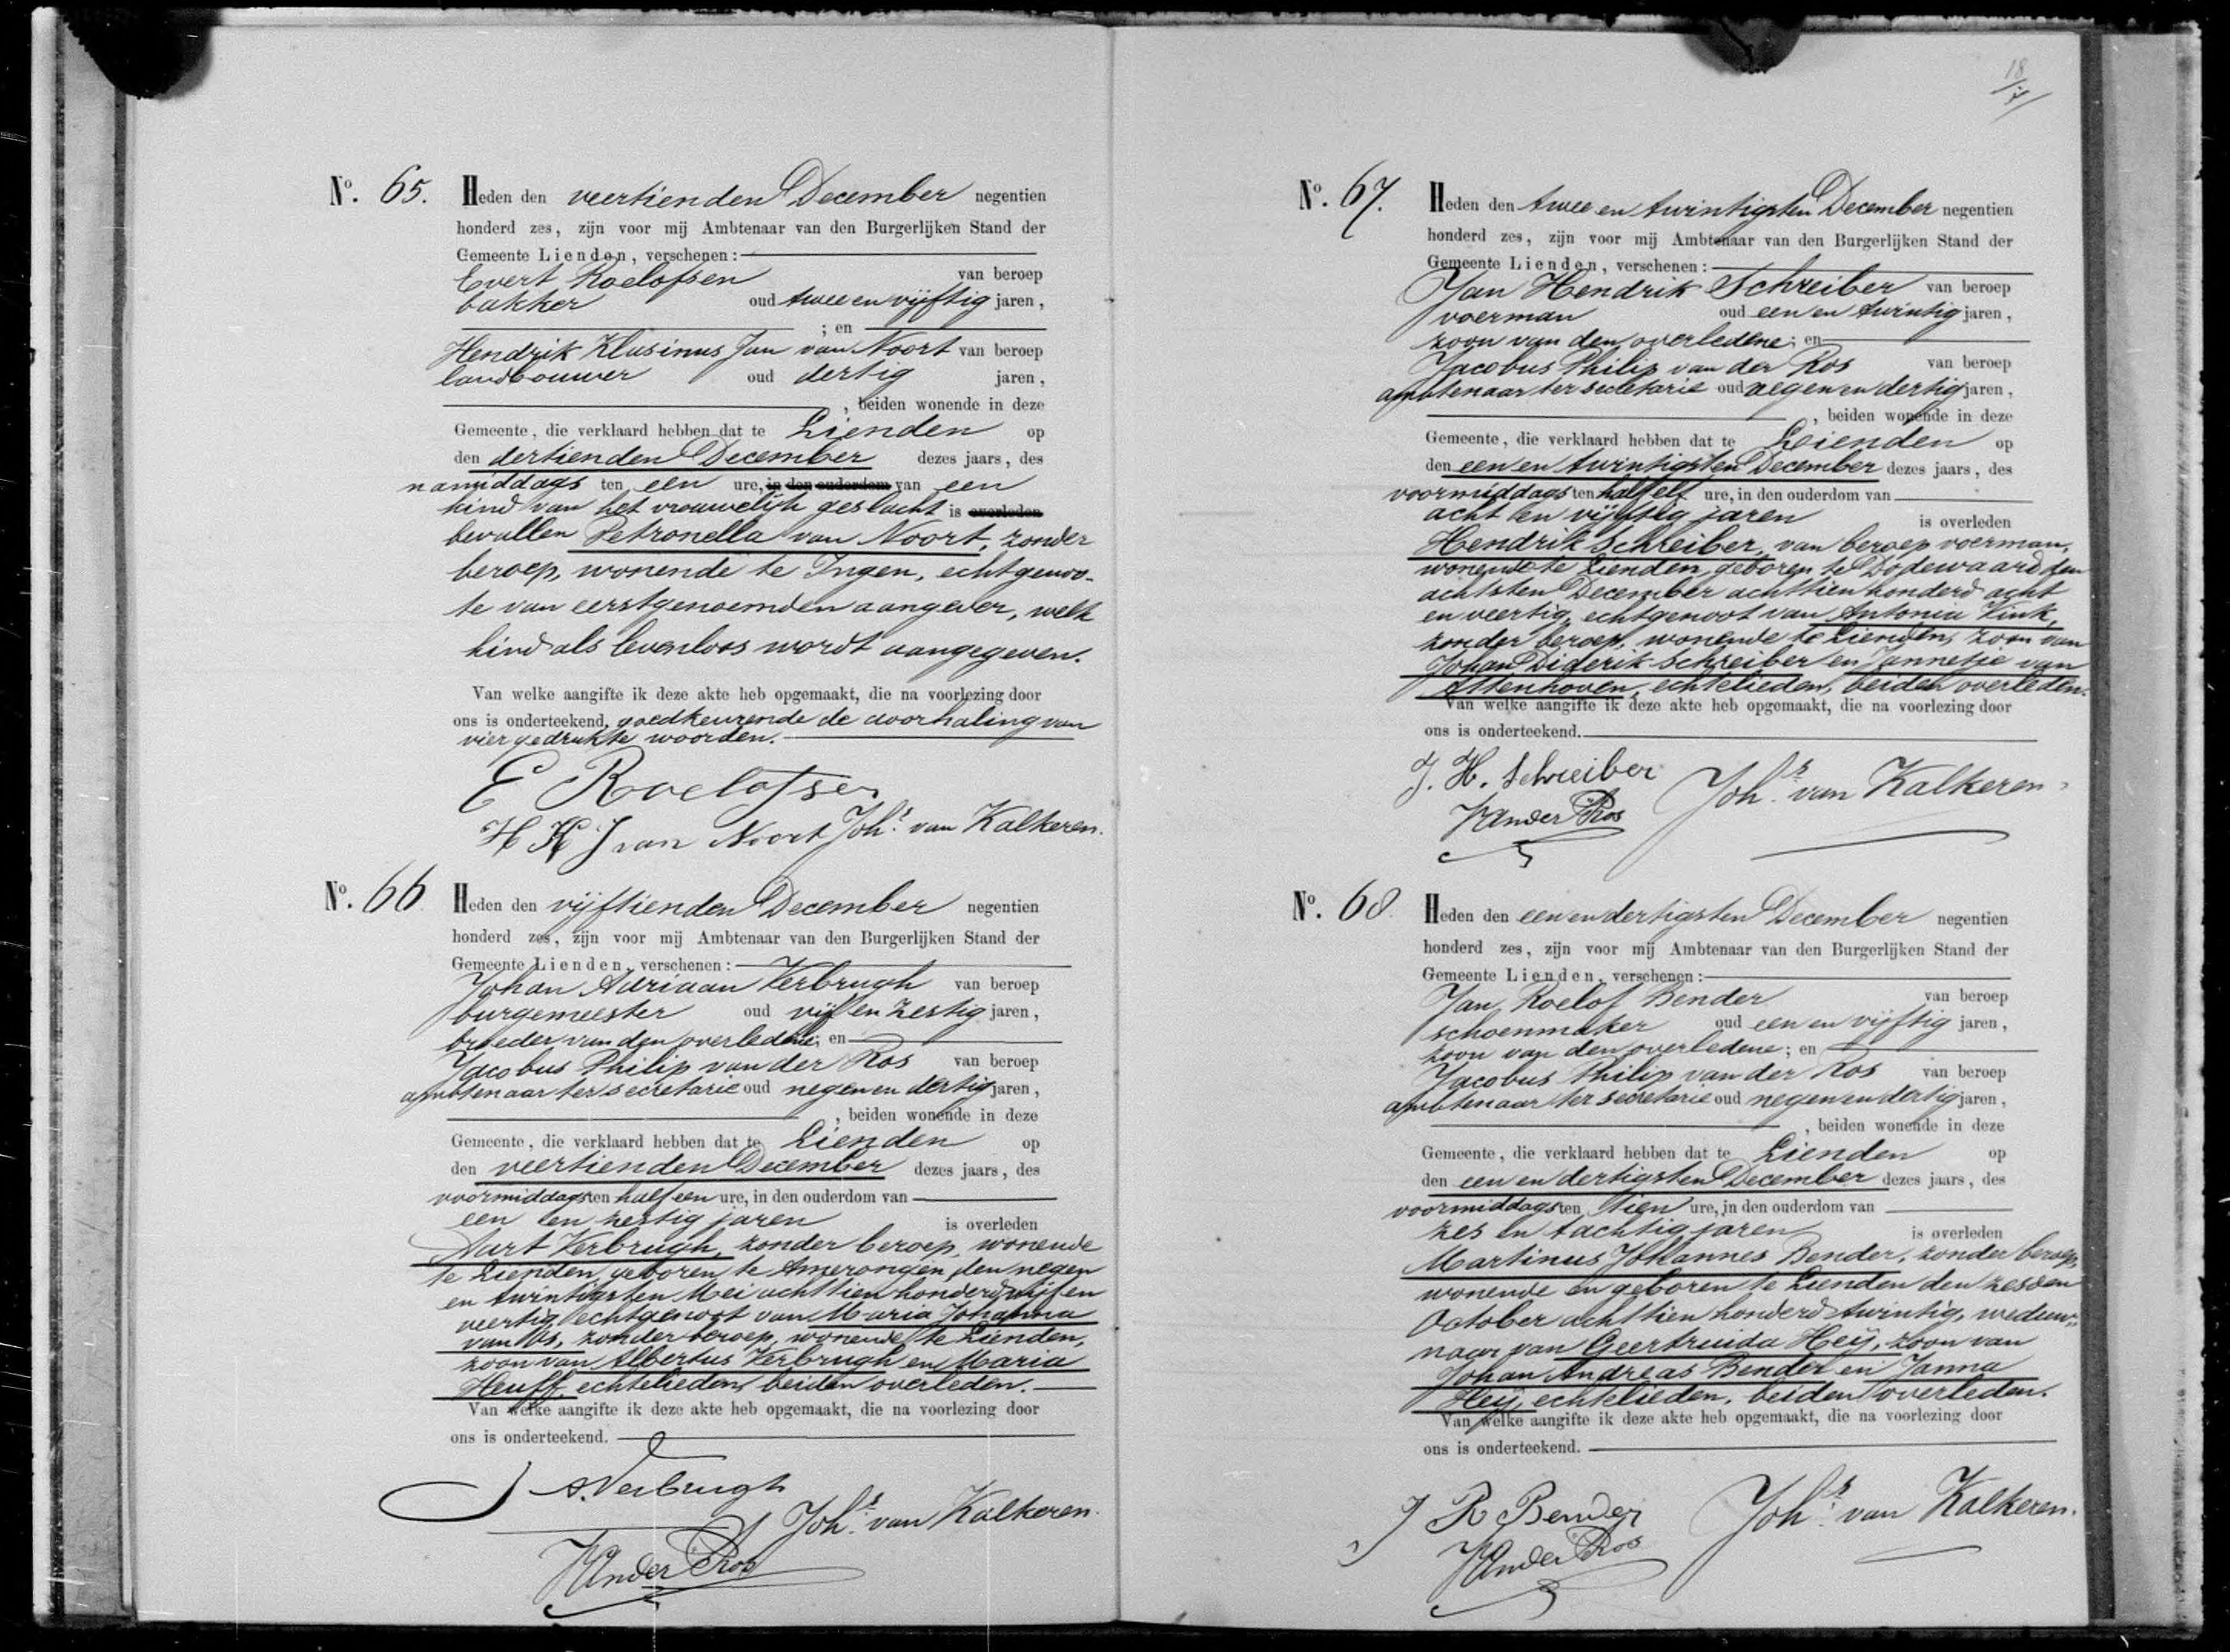 18
N°. 65. Heden den veertienden December negentien
honderd zes, zijn voor mij Ambtenaar van den Burgerlijken Stand der
Gemeente Lienden, verschenen:
Evert Roelofsen van beroep
bakker oud twee en vijftig jaren,
; en
Hendrik Klasinus Jan van Noort van beroep
landbouwer oud dertig jaren,
, beiden wonende in deze
Gemeente, die verklaard hebben dat te Lienden op
den dertienden December dezes jaars, des
namiddags ten een ure, in den ouderdom van een
kind van het vrouwelijk geslacht is overleden
bevallen Petronella van Noort, zonder
beroep, wonende te Ingen, echtgenoo-
te van eerstgenoemden aangever, welk
kind als levenloos wordt aangegeven.
Van welke aangifte ik deze akte heb opgemaakt, die na voorlezing door
ons is onderteekend, goedkeurende de doorhaling van
vier gedrukte woorden.
E Roelofsen
H K J van Noort Joh.s van Kalkeren.
N°. 66 Heden den vijftienden December negentien
honderd zes, zijn voor mij Ambtenaar van den Burgerlijken Stand der
Gemeente Lienden, verschenen:
Johan Adriaan Verbrugh van beroep
burgemeester oud vijf en zestig jaren,
broeder van den overledene; en
Jacobus Philip van der Ros van beroep
ambtenaar ter secretarie oud negen en dertig jaren,
, beiden wonende in deze
Gemeente, die verklaard hebben dat te Lienden op
den veertienden December dezes jaars, des
voormiddags ten half een ure, in den ouderdom van
een en zestig jaren is overleden
Aart Verbrugh, zonder beroep, wonende
te Lienden, geboren te Amerongen den negen
en twintigsten Mei achttien honderd vijf en
veertig echtgenoot van Maria Johanna
van Os, zonder beroep, wonende te Lienden,
zoon van Albertus Verbrugh en Maria
Heuff, echtelieden, beiden overleden.
Van welke aangifte ik deze akte heb opgemaakt, die na voorlezing door
ons is onderteekend.
J A. Verbrugh
Joh.s van Kalkeren.
JvanderRos
N°. 67. Heden den twee en twintigsten December negentien
honderd zes, zijn voor mij Ambtenaar van den Burgerlijken Stand der
Gemeente Lienden, verschenen:
Jan Hendrik Schreiber van beroep
voerman oud een en twintig jaren,
zoon van den overledene; en
Jacobus Philip van der Ros van beroep
ambtenaar ter secretarie oud negen en dertig jaren,
, beiden wonende in deze
Gemeente, die verklaard hebben dat te Lienden op
den een en twintigsten December dezes jaars, des
voormiddags ten half elf ure, in den ouderdom van
acht en vijftig jaren is overleden
Hendrik Schreiber, van beroep voerman,
wonende te Lienden, geboren te Dodewaard den
achtsten December achttien honderd acht
en veertig, echtgenoot van Antonia Vink,
zonder beroep, wonende te Lienden, zoon van
Johan Diderik Schreiber en Jannetje van
Ettenhoven, echtelieden, beiden overleden.
Van welke aangifte ik deze akte heb opgemaakt, die na voorlezing door
ons is onderteekend.
J. H. Schreiber
Joh.s van Kalkeren
JvanderRos
N°. 68. Heden den een en dertigsten December negentien
honderd zes, zijn voor mij Ambtenaar van den Burgerlijken Stand der
Gemeente Lienden, verschenen:
Jan Roelof Bender van beroep
schoenmaker oud een en vijftig jaren,
zoon van den overledene; en
Jacobus Philip van der Ros van beroep
ambtenaar ter secretarie oud negen en dertig jaren,
, beiden wonende in deze
Gemeente, die verklaard hebben dat te Lienden op
den een en dertigsten December dezes jaars, des
voormiddags ten tien ure, in den ouderdom van
zes en tachtig jaren is overleden
Martinus Johannes Bender, zonder beroep,
wonende en geboren te Lienden den zesden
October achttien honderd twintig, weduw-
naar van Geertruida Heij, zoon van
Johan Andreas Bender en Janna
Heij, echtelieden, beiden overleden.
Van welke aangifte ik deze akte heb opgemaakt, die na voorlezing door
ons is onderteekend.
J R Bender
Joh.s van Kalkeren.
JvanderRos